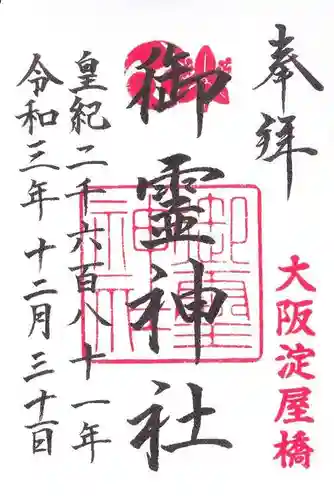 奉拝
大阪淀屋橋
御霊神社
皇紀二千六百八十一年
令和三年十二月三十一日